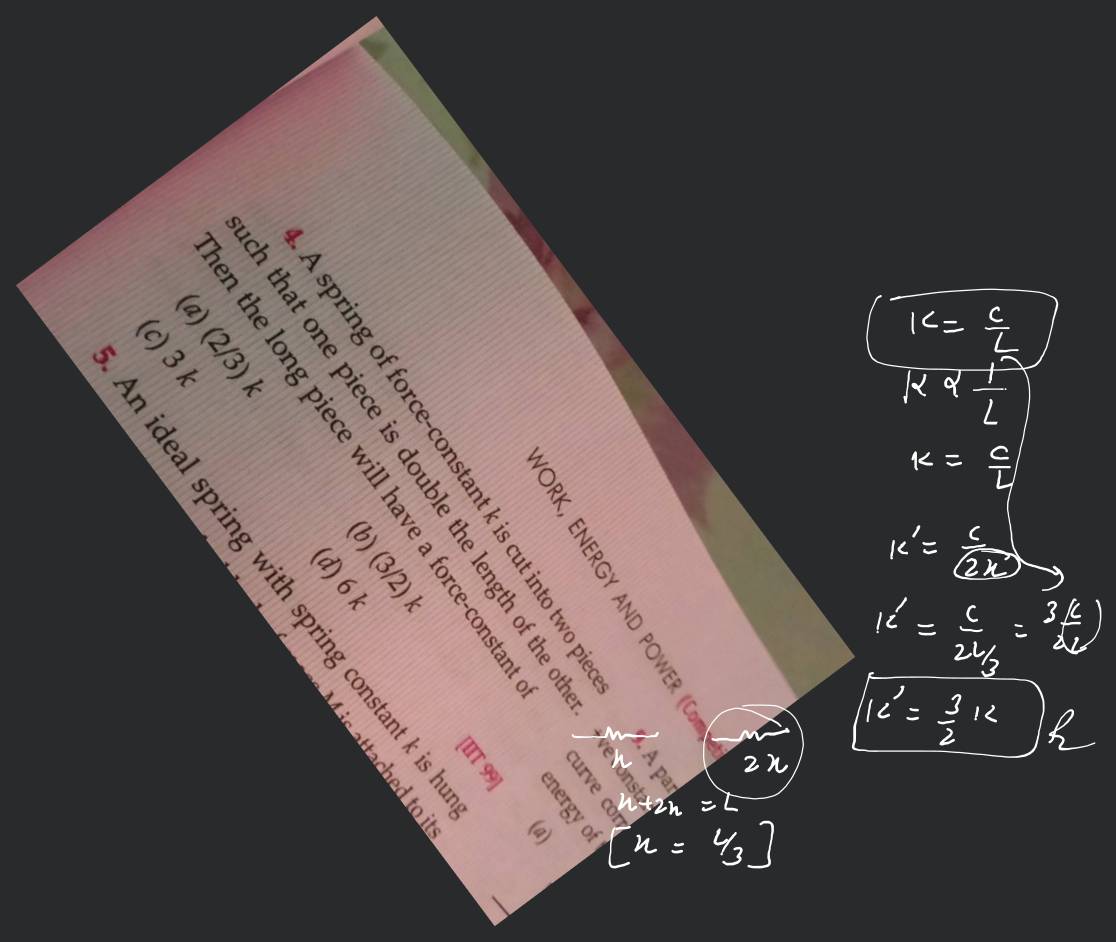 WORK, ENERGY AND POWER (Comp
4. A spring of force-constant k is cut into two pieces
such that one piece is double the length of the other.
Then the long piece will have a force-constant of
(a) (2/3) k (b) (3/2) k
(c) 3 k (d) 6 k
[IIT 99]
5. An ideal spring with spring constant k is hung
M is attached to its
A par
curve corr
energy of
(a)
x
2x
x+2x = L
[x = L/3]
K = C/L
K ∝ 1/L
K = C/L
K' = C/2x
K' = C/2L/3 = 3/2 (C/L)
K' = 3/2 K